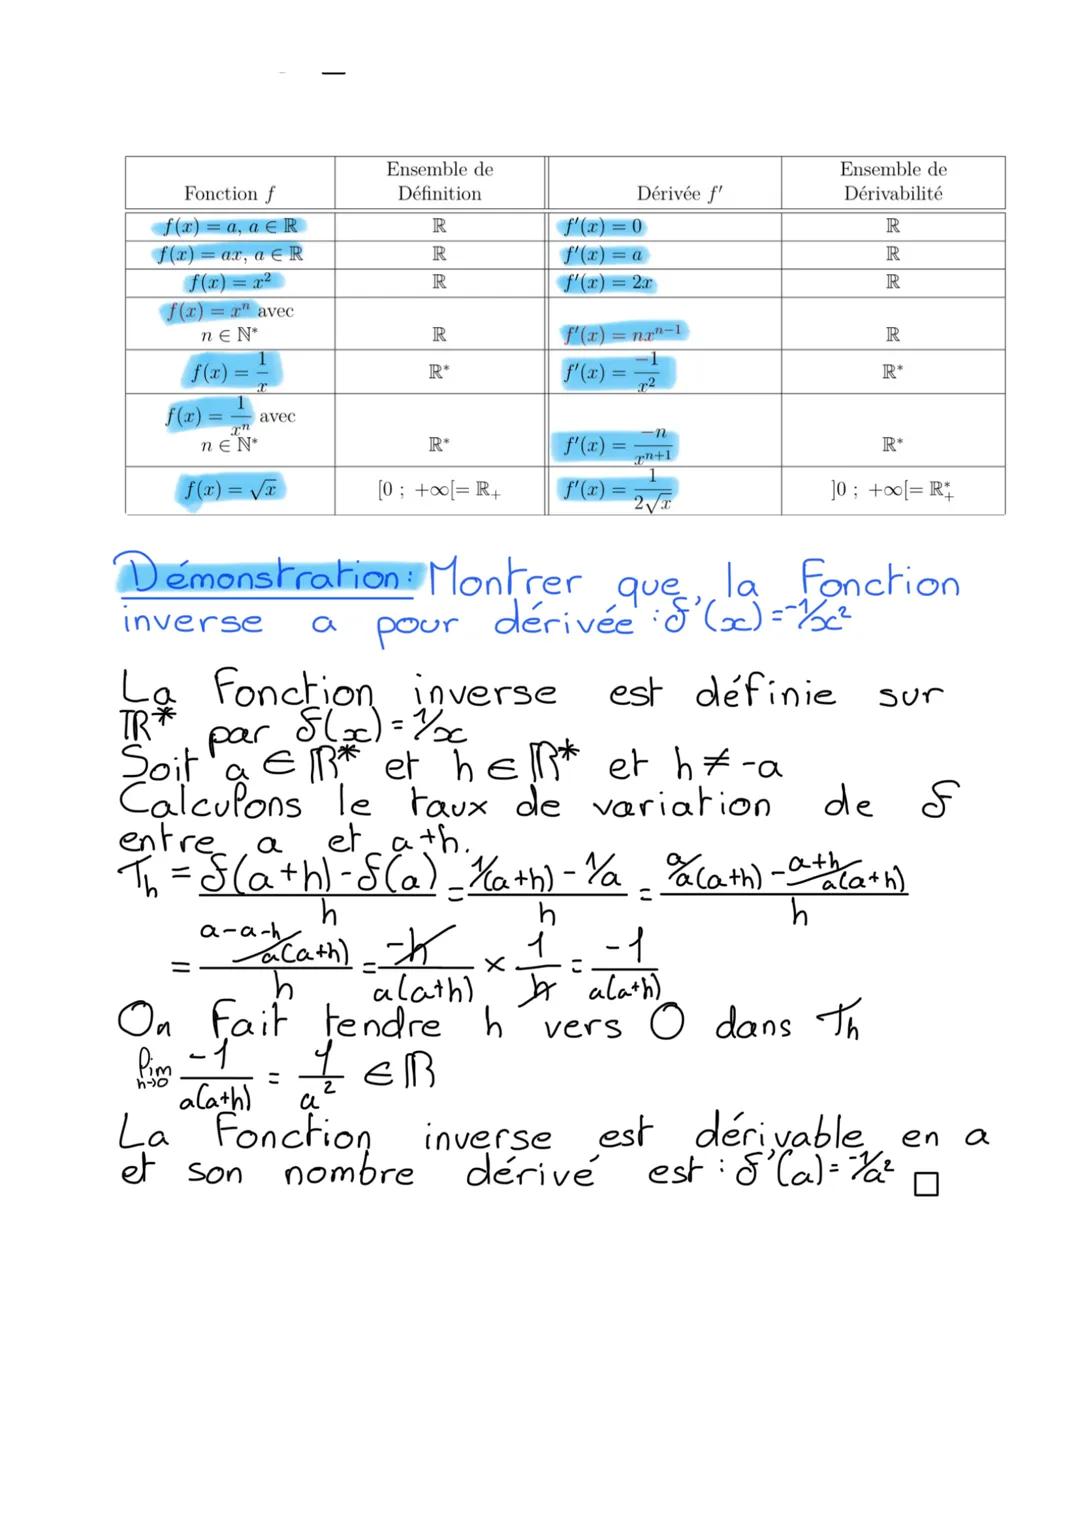 Fonction f | Ensemble de Définition | Dérivée f' | Ensemble de Dérivabilité
f(x) = a, a ∈ ℝ | ℝ | f'(x) = 0 | ℝ
f(x) = ax, a ∈ ℝ | ℝ | f'(x) = a | ℝ
f(x) = x² | ℝ | f'(x) = 2x | ℝ
f(x) = xⁿ avec n ∈ ℕ* | ℝ | f'(x) = nxⁿ⁻¹ | ℝ
f(x) = 1/x | ℝ* | f'(x) = -1/x² | ℝ*
f(x) = 1/xⁿ avec n ∈ ℕ* | ℝ* | f'(x) = -n/xⁿ⁺¹ | ℝ*
f(x) = √x | [0 ; +∞[= ℝ₊ | f'(x) = 1/(2√x) | ]0 ; +∞[= ℝ₊*
Démonstration: Montrer que la Fonction
inverse a pour dérivée : f'(x) = -1/x²
La Fonction inverse est définie sur
ℝ* par f(x) = 1/x
Soit a ∈ ℝ* et h ∈ ℝ* et h ≠ -a
Calculons le taux de variation de f
entre a et a+h.
Th = (f(a+h) - f(a))/h = (1/(a+h) - 1/a)/h = (a/a(a+h) - a+h/a(a+h))/h
= (a-a-h/a(a+h))/h = -h/a(a+h) × 1/h = -1/a(a+h)
On Fait tendre h vers 0 dans Th
lim h→0 -1/a(a+h) = 1/a² ∈ ℝ
La Fonction inverse est dérivable en a
et son nombre dérivé est : f'(a) = -1/a² □